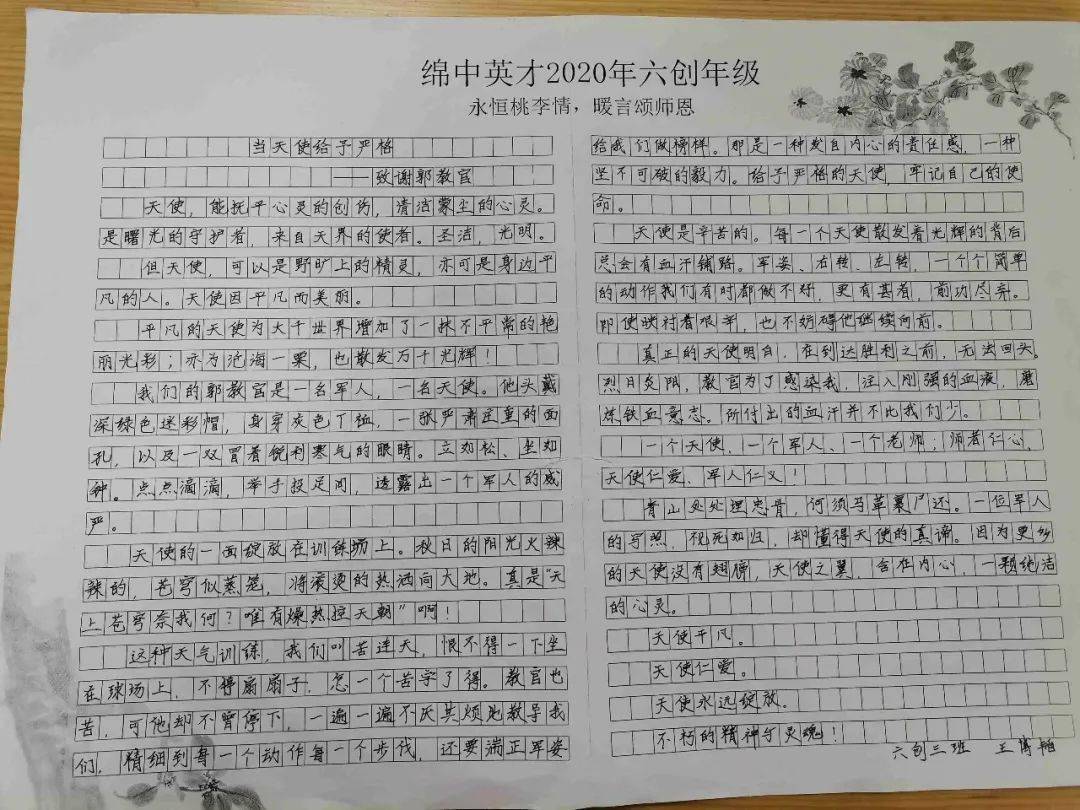 绵中英才2020年六创年级
永恒桃李情，暖言颂师恩
当天使给予严格
——致谢郭教官
天使，能抚平心灵的创伤，清洁蒙尘的心灵。
是曙光的守护者，来自天界的使者。圣洁，光明。
但天使，可以是野旷上的精灵，亦可是身边平
凡的人。天使因平凡而美丽。
平凡的天使为大千世界增加了一抹不平常的艳
丽光彩；亦为沧海一粟，也散发万千光辉！
我们的郭教官是一名军人，一名天使。他头戴
深绿色迷彩帽，身穿灰色丅恤，一张严肃庄重的面
孔，以及一双冒着锐利寒气的眼睛。立如松、坐如
钟。点点滴滴，举手投足间，透露出一个军人的威
严。
天使的一面绽放在训练场上。秋日的阳光火辣
辣的，苍穹似蒸笼，将滚烫的热洒向大地。真是“天
上苍穹奈我何？唯有燥热控天朝”啊！
这种天气训练，我们叫苦连天，恨不得一下坐
在球场上，不停扇扇子，怎一个苦字了得。教官也
苦，可他却不曾停下，一遍一遍不厌其烦地教导我
们，精细到每一个动作每一个步伐，还要端正军姿
给我们做榜样。那是一种发自内心的责任感，一种
坚不可破的毅力。给予严格的天使，牢记自己的使
命。
天使是辛苦的。每一个天使散发着光辉的背后
总会有血汗铺路。军姿、右转、左转，一个个简单
的动作我们有时都做不好，更有甚者，前功尽弃。
即使映衬着艰辛，也不妨碍他继续向前。
真正的天使明白，在到达胜利之前，无法回头。
烈日炎阳，教官为了感染我，注入刚强的血液，磨
炼铁血意志。所付出的血汗并不比我们少。
一个天使，一个军人、一个老师；师者仁心，
天使仁爱、军人仁义！
青山处处埋忠骨，何须马革裹尸还。一位军人
的写照，视死如归，却懂得天使的真谛。因为更多
的天使没有翅膀，天使之翼，含在内心，一颗纯洁
的心灵。
天使平凡。
天使仁爱。
天使永远绽放。
不朽的精神与灵魂！
六创三班 王博